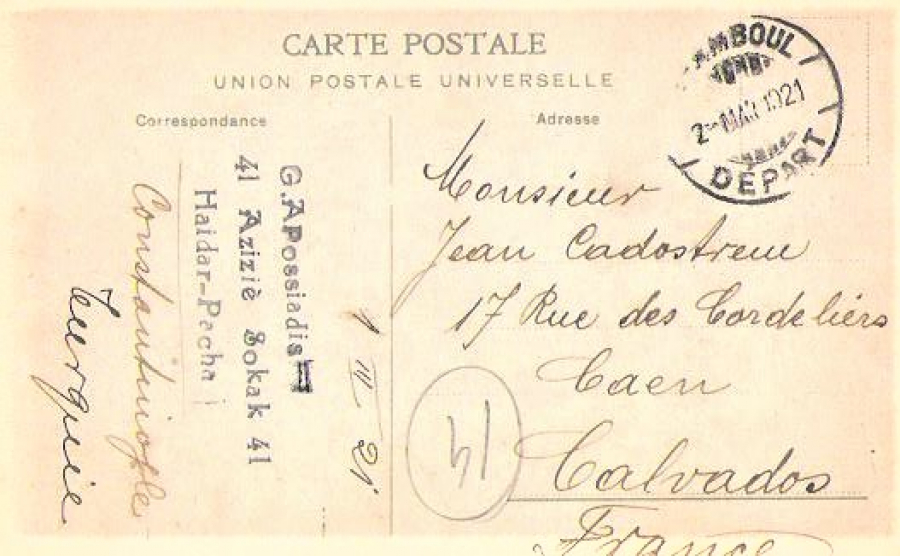 CARTE POSTALE
UNION POSTALE UNIVERSELLE
Correspondance
Adresse
AMBOUL
2 - MAR 1921
DÉPART
G.APossiadis
41 Aziziè Sokak 41
Haidar-Pacha
Constantinople
Turquie
1 III 21
Monsieur
Jean Cadostrem
17 Rue des Cordeliers
Caen
Calvados
France
41